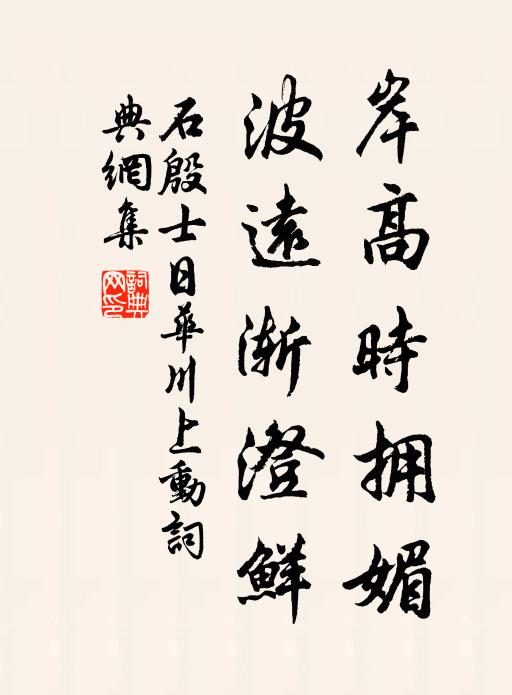 岸高時拥媚
波遠漸澄鮮
石殷士日華川上動詞
典網集
詞典
网印